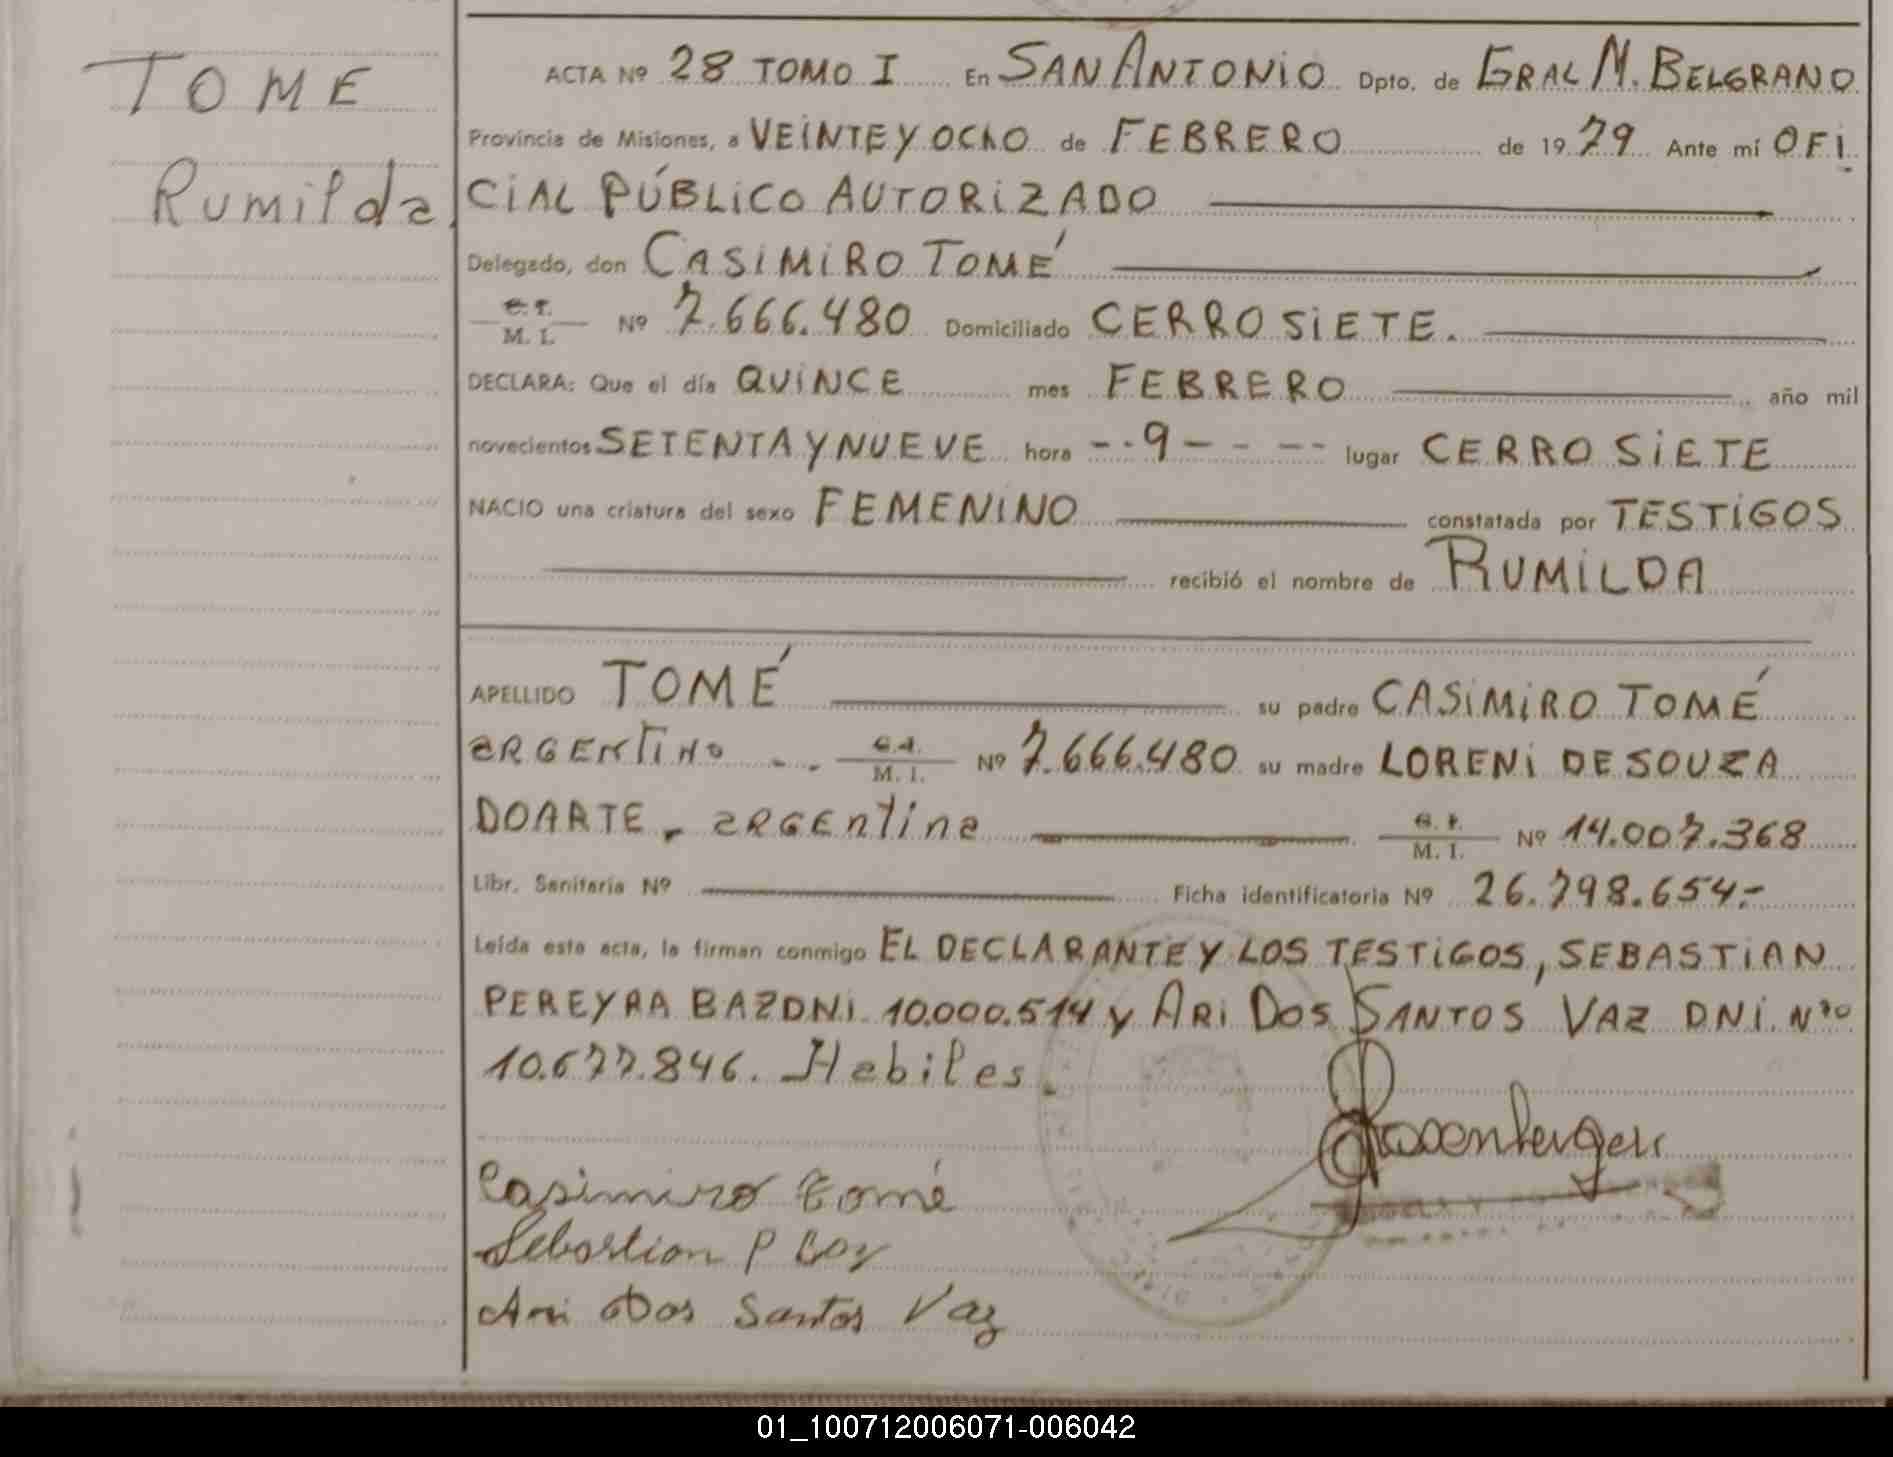 TOME
Rumilda.
ACTA Nº 28 TOMO I En SAN ANTONIO Dpto. de GRAL M. BELGRANO
Provincia de Misiones, a VEINTE Y OCHO de FEBRERO de 1979 Ante mí OFI
CIAL PÚBLICO AUTORIZADO
Delegado, don CASIMIRO TOMÉ
M. I. Nº 7.666.480 Domiciliado CERRO SIETE.
DECLARA: Que el día QUINCE mes FEBRERO año mil
novecientos SETENTA Y NUEVE hora --9---- lugar CERRO SIETE
NACIO una criatura del sexo FEMENINO constatada por TESTIGOS
recibió el nombre de RUMILDA
APELLIDO TOMÉ su padre CASIMIRO TOMÉ
ARGENTINO -- M. I. Nº 7.666.480 su madre LORENI DE SOUZA
DOARTE - argentina M. I. Nº 14.007.368
Libr. Sanitaria Nº Ficha identificatoria Nº 26.798.654.-
Leída esta acta, la firman conmigo EL DECLARANTE Y LOS TESTIGOS, SEBASTIAN
PEREYRA BAZ DNI. 10.000.514 y ARI DOS SANTOS VAZ DNI. Nro
10.677.846. Habiles.
Casimiro Tomé
Sebastian P
Ari Dos Santos Vaz
01_100712006071-006042